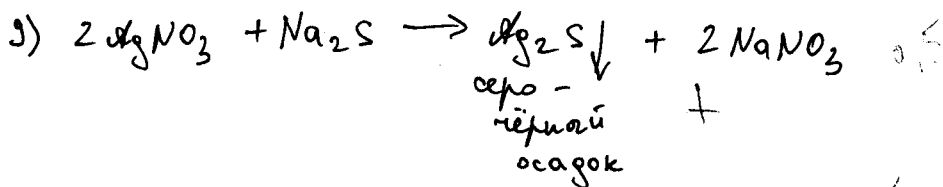 9) 2AgNO₃ + Na₂S → Ag₂S↓ + 2NaNO₃
серо-
чёрный
осадок
+